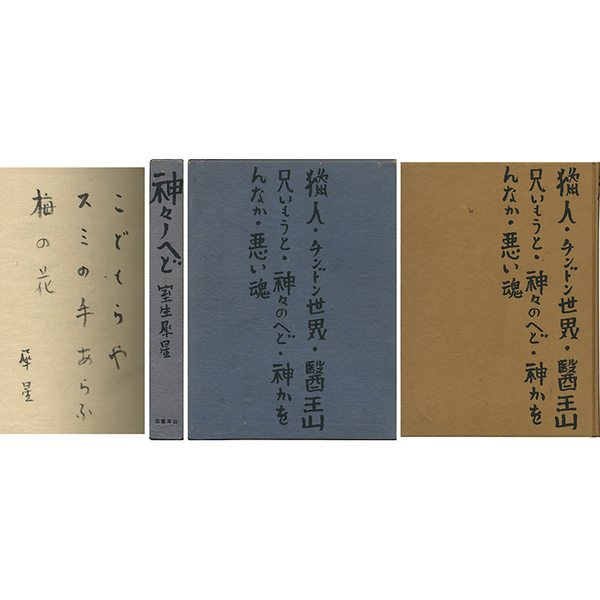 こどもらや
スミの手あらふ
梅の花
犀星
神々のへど
室生犀星
山本書店
獵人・チンドン世界・醫王山
兄いもうと・神々のへど・神かを
んなか・悪い魂
獵人・チンドン世界・醫王山
兄いもうと・神々のへど・神かを
んなか・悪い魂